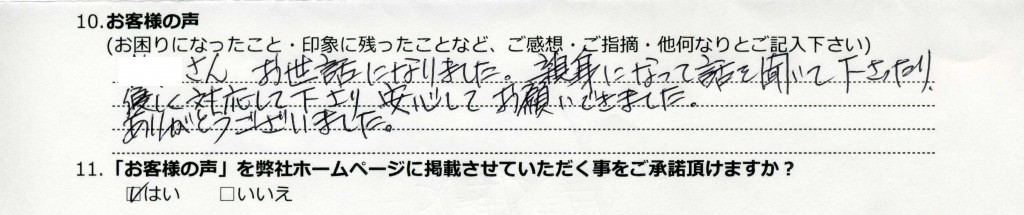 10.お客様の声
(お困りになったこと・印象に残ったことなど、ご感想・ご指摘・他何なりとご記入下さい)
さん お世話になりました。親身になって話を聞いて下さったり、
優しく対応して下さり 安心してお願いできました。
ありがとうございました。
11.「お客様の声」を弊社ホームページに掲載させていただく事をご承諾頂けますか？
☑はい □いいえ